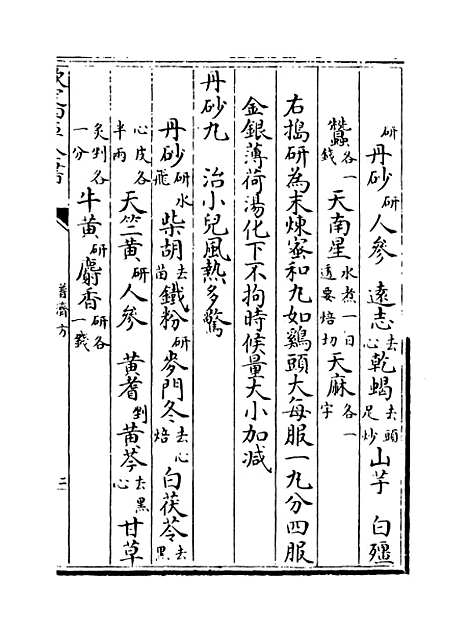 研丹砂研人參 遠志去心乾蝎去頭足炒山芋 白殭
蠶各一錢天南星水煮一日透要焙切天麻各一字
右搗研為末煉蜜和丸如鷄頭大每服一丸分四服
金銀薄荷湯化下不拘時候量大小加減
丹砂丸 治小兒風熱多驚
丹砂研水飛柴胡去苗鐵粉研麥門冬去心焙白茯苓去黑
心皮各半兩天竺黃研人參 黃耆剉黃芩去黑心甘草
炙剉各一分牛黃研麝香研各一錢
普濟方